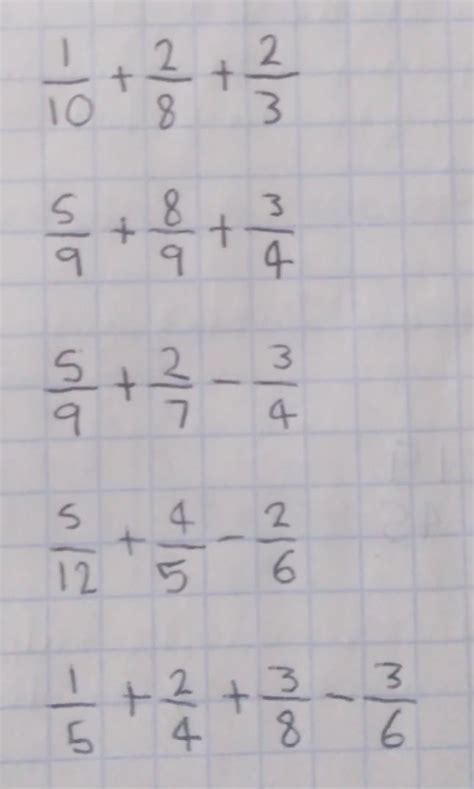 1/10 + 2/8 + 2/3
5/9 + 8/9 + 3/4
5/9 + 2/7 - 3/4
5/12 + 4/5 - 2/6
1/5 + 2/4 + 3/8 - 3/6